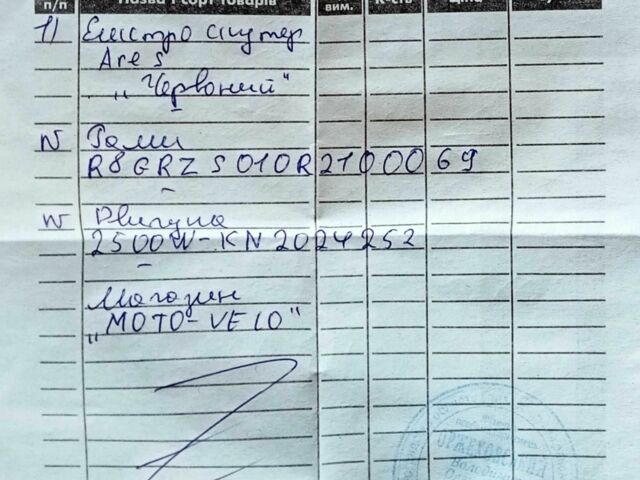 п/п Назва і сорт товарів вим. К-сть Ціна
1) Електро скутер
Ares
„Червоний"
N Рами
R8GRZS010R21000069
N Двигуна
2500W-KN2024252
Магазин
„MOTO-VELO"